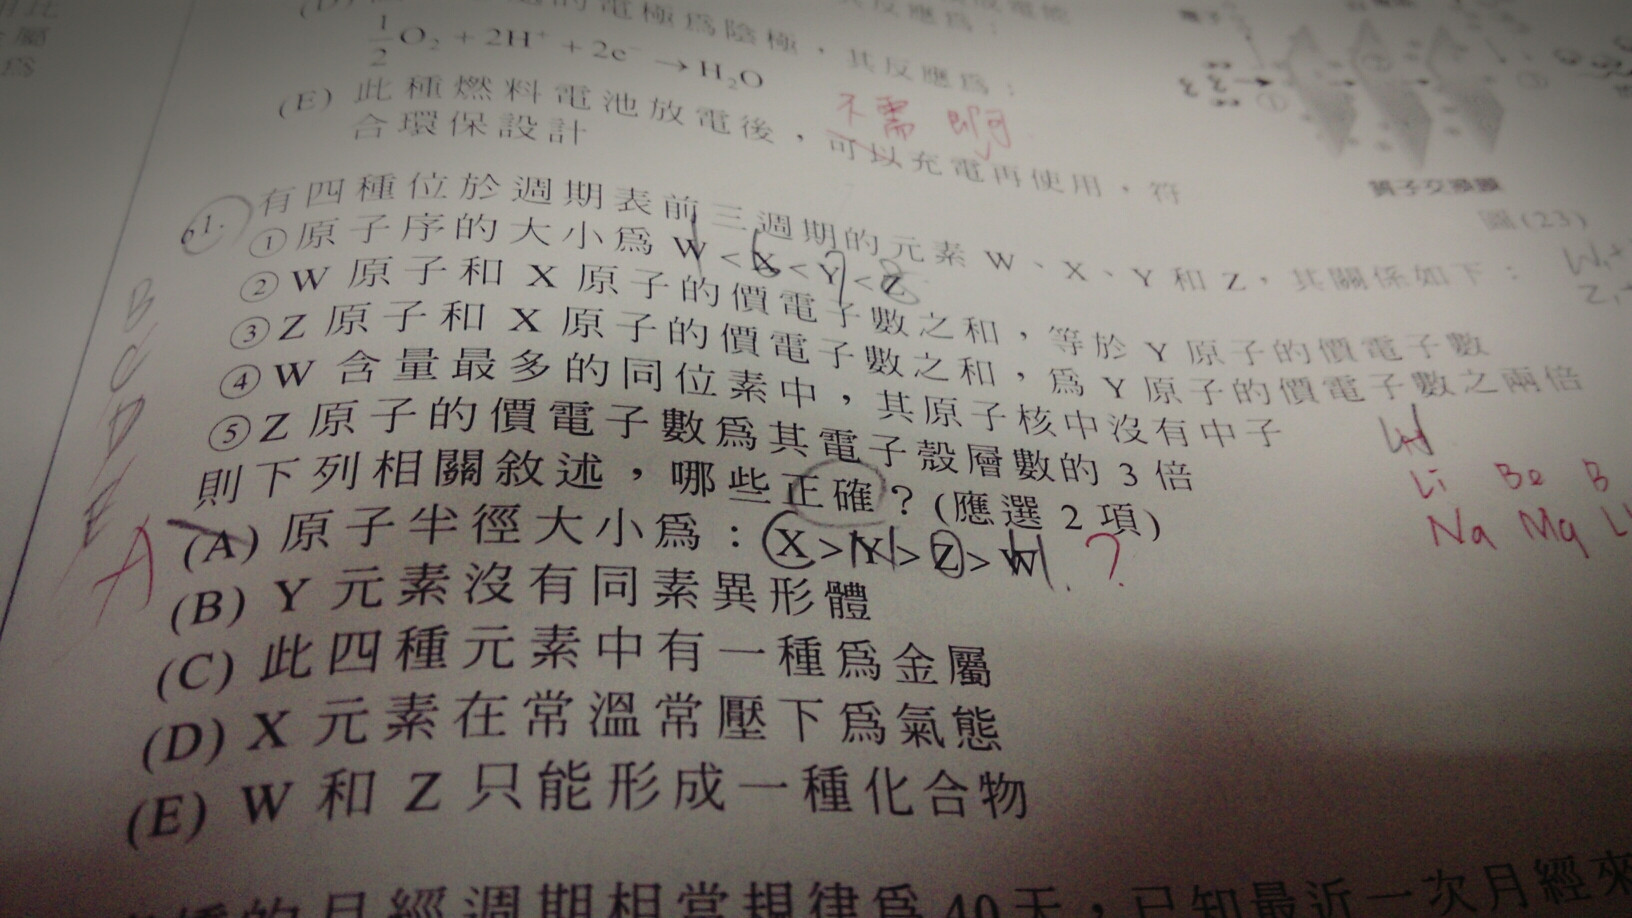 電極為陰極，其反應為：
1/2 O₂ + 2H⁺ + 2e⁻ → H₂O
(E) 此種燃料電池放電後，可以充電再使用，符
合環保設計
不需 即可
質子交換膜
圖(23)
61.
有四種位於週期表前三週期的元素 W、X、Y 和 Z，其關係如下：
①原子序的大小為 W < X < Y < Z
②W 原子和 X 原子的價電子數之和，等於 Y 原子的價電子數
③Z 原子和 X 原子的價電子數之和，為 Y 原子的價電子數之兩倍
④W 含量最多的同位素中，其原子核中沒有中子
⑤Z 原子的價電子數為其電子殼層數的 3 倍
則下列相關敘述，哪些正確？(應選 2 項)
(A) 原子半徑大小為：X > Y > Z > W ?
(B) Y 元素沒有同素異形體
(C) 此四種元素中有一種為金屬
(D) X 元素在常溫常壓下為氣態
(E) W 和 Z 只能形成一種化合物
B
C
D
E
A
H
Li Be B
Na Mg
的月經週期相當規律為 40天，已知最近一次月經來